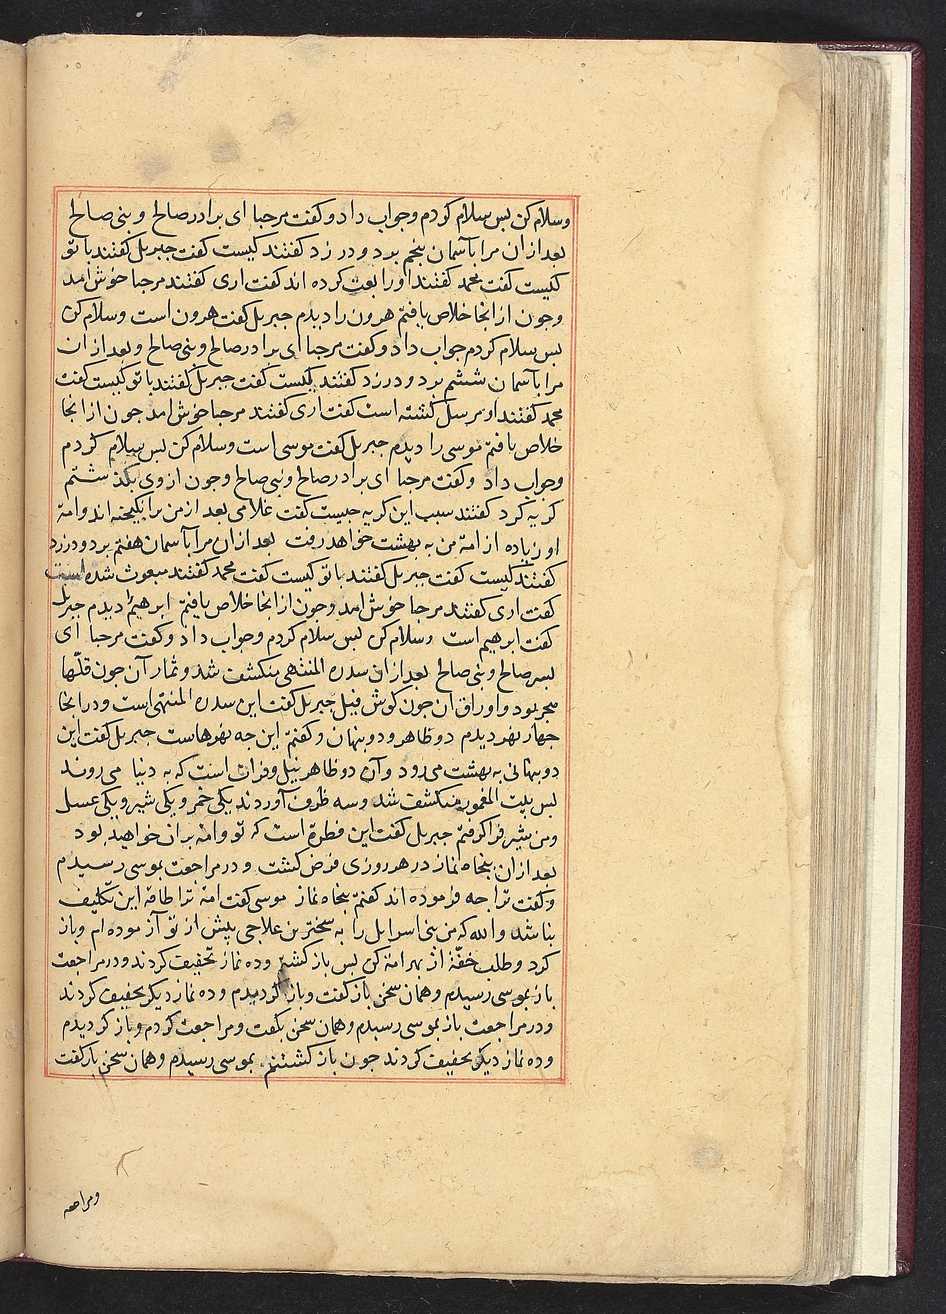 وسلام کن بس سلام کردم وجواب داد و کفت مرحبا ای برادر صالح و بنی صالح
بعد از ان مرا بآسمان پنجم برد و در زد کفتند کیست کفت جبریل کفتند با تو
کیست کفت محمد کفتند او را بعث کرده اند کفت اری کفتند مرحبا خوش امد
وجون از انجا خلاص یافتم هرون را دیدم جبریل کفت هرون است وسلام کن
بس سلام کردم جواب داد و کفت مرحبا ای برادر صالح و بنی صالح و بعد از ان
مرا بآسمان ششم برد و در زد کفتند کیست کفت جبریل کفتند با تو کیست کفت
محمد کفتند او مرسل کشته است کفت اری کفتند مرحبا خوش امد جون از انجا
خلاص یافتم موسی را دیدم جبریل کفت موسی است وسلام کن بس سلام کردم
وجواب داد و کفت مرحبا ای برادر صالح و بنی صالح وجون از وی بکذشتم
کریه کرد کفتند سبب این کریه جیست کفت غلامی بعد از من برانکیخته اند وامة
او زیاده از امة من به بهشت خواهد رفت بعد از ان مرا بآسمان هفتم برد و در زد
کفتند کیست کفت جبریل کفتند با تو کیست کفت محمد کفتند مبعوث شده است
کفت اری کفتند مرحبا خوش امد وجون از انجا خلاص یافتم ابرهیم را دیدم جبریل
کفت ابرهیم است وسلام کن بس سلام کردم وجواب داد و کفت مرحبا ای
بسر صالح و بنی صالح بعد از ان سدره المنتهی منکشف شد و ثمار آن جون قلّها
هجر بود و اوراق ان جون کوش فیل جبریل کفت این سدره المنتهی است و در انجا
جهار نهر دیدم دو ظاهر و دو پنهان و کفتم این جه نهرهاست جبریل کفت این
دو پنهانی به بهشت می رود و آن دو ظاهر نیل و فرات است که به دنیا می روند
بس بیت المعمور منکشف شد و سه ظرف آوردند یکی خمر و یکی شیر و یکی عسل
ومن شیر فرا کرفتم جبریل کفت این فطرة است که تو وامة بران خواهید بود
بعد از ان پنجاه نماز در هر روزی فرض کشت و در مراجعت بموسی رسیدم
و کفت ترا جه فرموده اند کفتم پنجاه نماز موسی کفت امة ترا طاقة این تکلیف
نباشد والله که من بنی اسرایل را به سختترین علاجی بیش از تو آزموده ام و باز
کرد و طلب خفّة از بهر امة کن بس باز کشتم و ده نماز تخفیف کردند و در مراجعت
باز بموسی رسیدم و همان سخن باز کفت و باز کردیدم و ده نماز دیکر تخفیف کردند
و در مراجعت باز بموسی رسیدم و همان سخن بکفت و مراجعت کردم و باز کردیدم
و ده نماز دیکر تخفیف کردند جون باز کشتم بموسی رسیدم و همان سخن باز کفت
ومراجعه